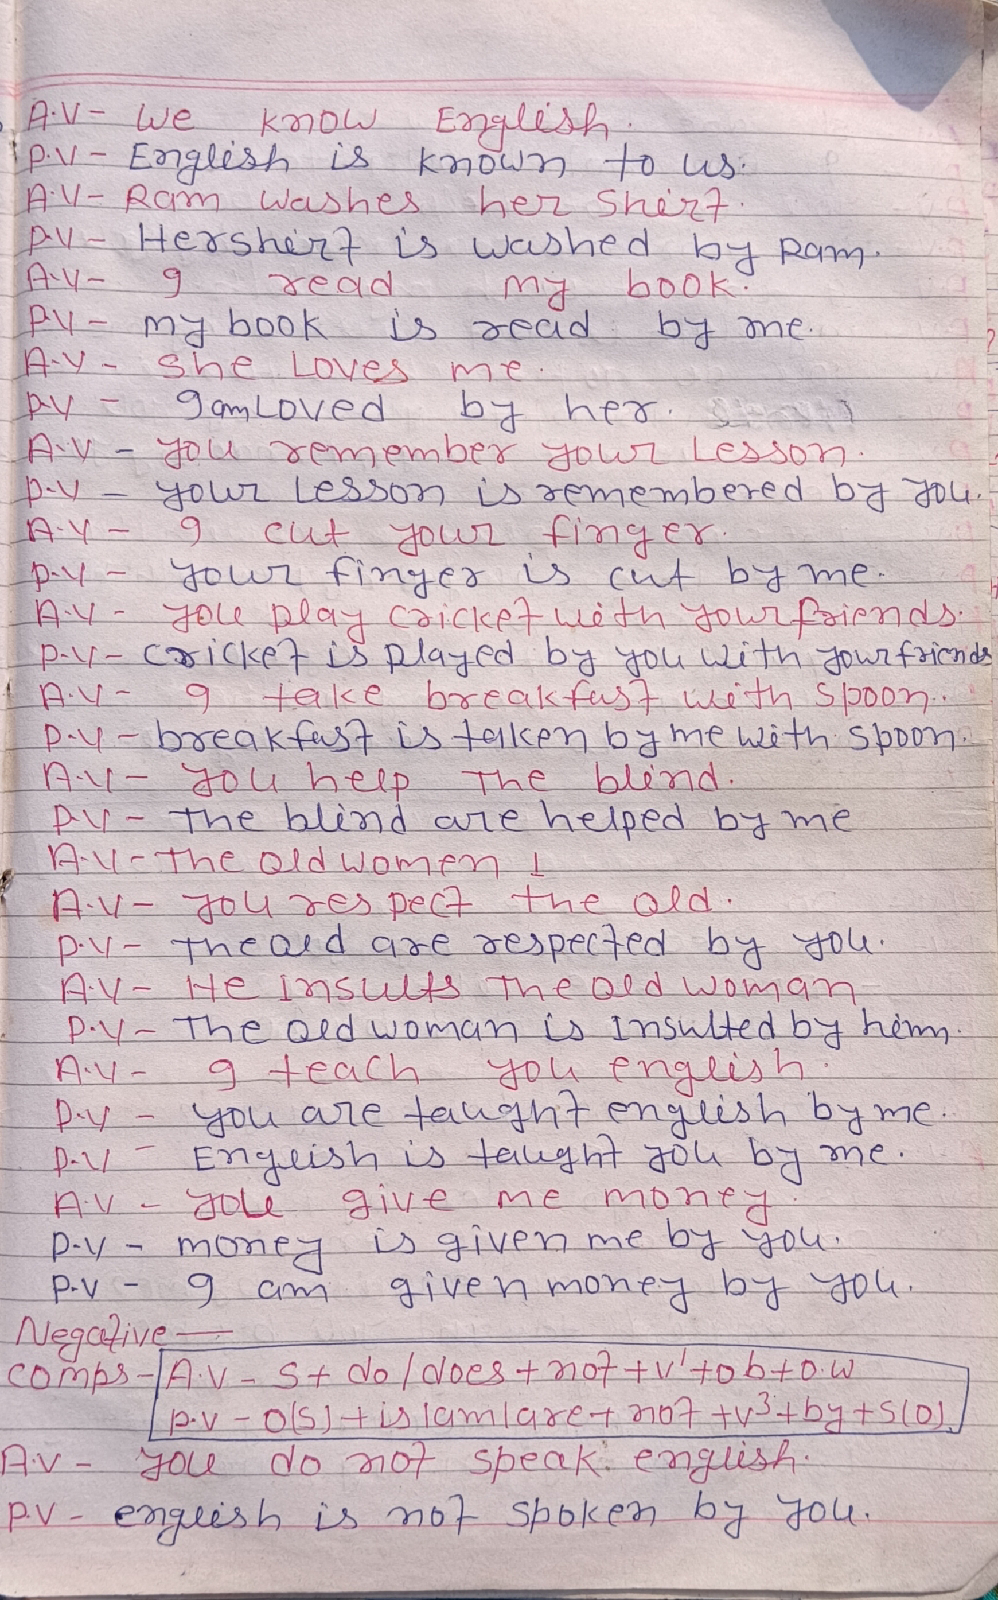 A.V - We know English.
P.V - English is known to us.
A.V - Ram washes her Shirt.
P.V - Her shirt is washed by Ram.
A.V - I read my book.
P.V - my book is read by me.
A.V - She Loves me.
P.V - I am Loved by her.
A.V - you remember your Lesson.
P.V - your Lesson is remembered by you.
A.V - I cut your finger.
P.V - your finger is cut by me.
A.V - you play cricket with your friends.
P.V - cricket is played by you with your friends
A.V - I take breakfast with spoon.
P.V - breakfast is taken by me with spoon.
A.V - you help The blind.
P.V - The blind are helped by me
A.V - The old women I
A.V - you respect the old.
P.V - The old are respected by you.
A.V - He insults The old woman
P.V - The old woman is Insulted by him.
A.V - I teach you english.
P.V - you are taught english by me.
P.V - English is taught you by me.
A.V - you give me money.
P.V - money is given me by you.
P.V - I am given money by you.
Negative —
comps - A.V - S + do / does + not + v¹ + ob + o.w
P.V - O(S) + is/am/are + not + v³ + by + S(O)
A.V - you do not speak english.
P.V - english is not spoken by you.